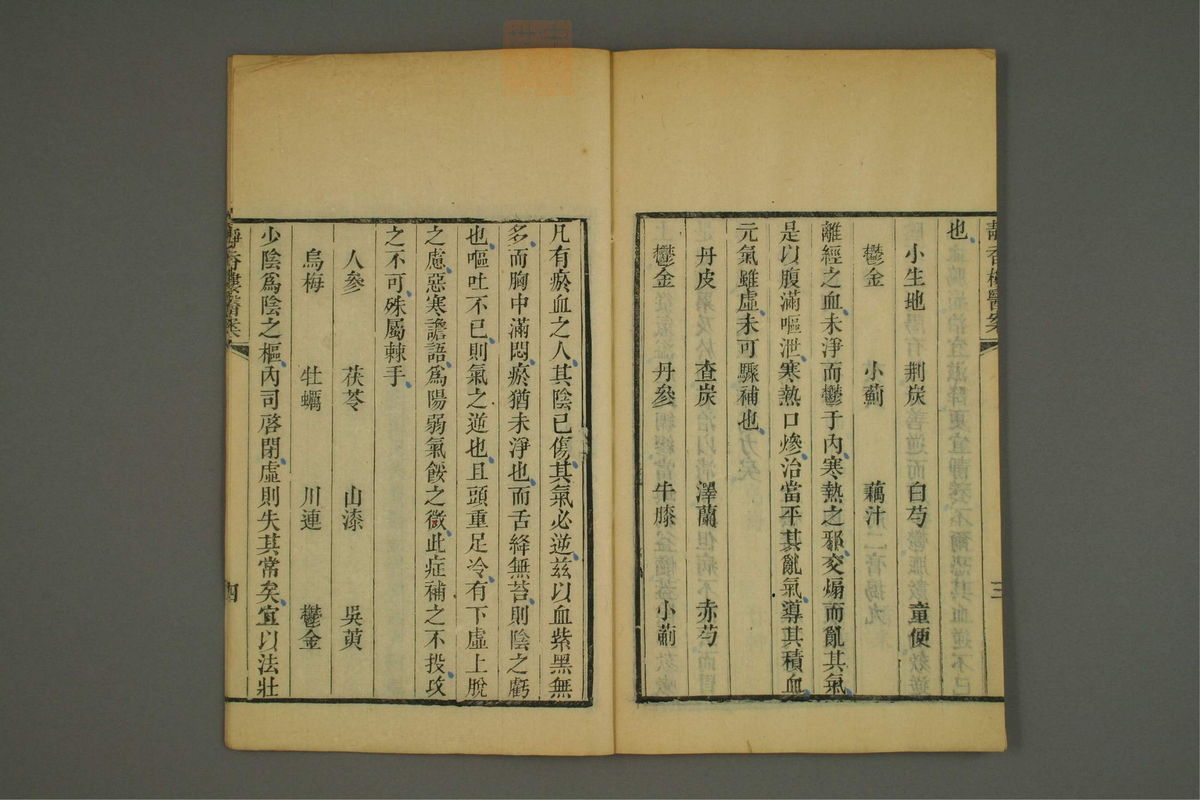 靜香樓醫案
三
也
小生地 荆炭 白芍 童便
鬱金 小薊 藕汁
離經之血未淨而鬱于內寒熱之邪交煽而亂其氣
是以腹滿嘔泄寒熱口燥治當平其亂氣導其積血
元氣雖虛未可驟補也
丹皮 查炭 澤蘭 赤芍
鬱金 丹參 牛膝 小薊
凡有瘀血之人其陰已傷其氣必逆兹以血紫黑無
多而胸中滿悶瘀猶未淨也而舌絳無苔則陰之虧
也嘔吐不已則氣之逆也且頭重足冷有下虛上脫
之慮惡寒譫語爲陽弱氣餒之徵此症補之不投攻
之不可殊屬棘手
人參 茯苓 山漆 吳萸
烏梅 牡蠣 川連 鬱金
少陰爲陰之樞內司啓閉虛則失其常矣宜以法壯
靜香樓醫案
四